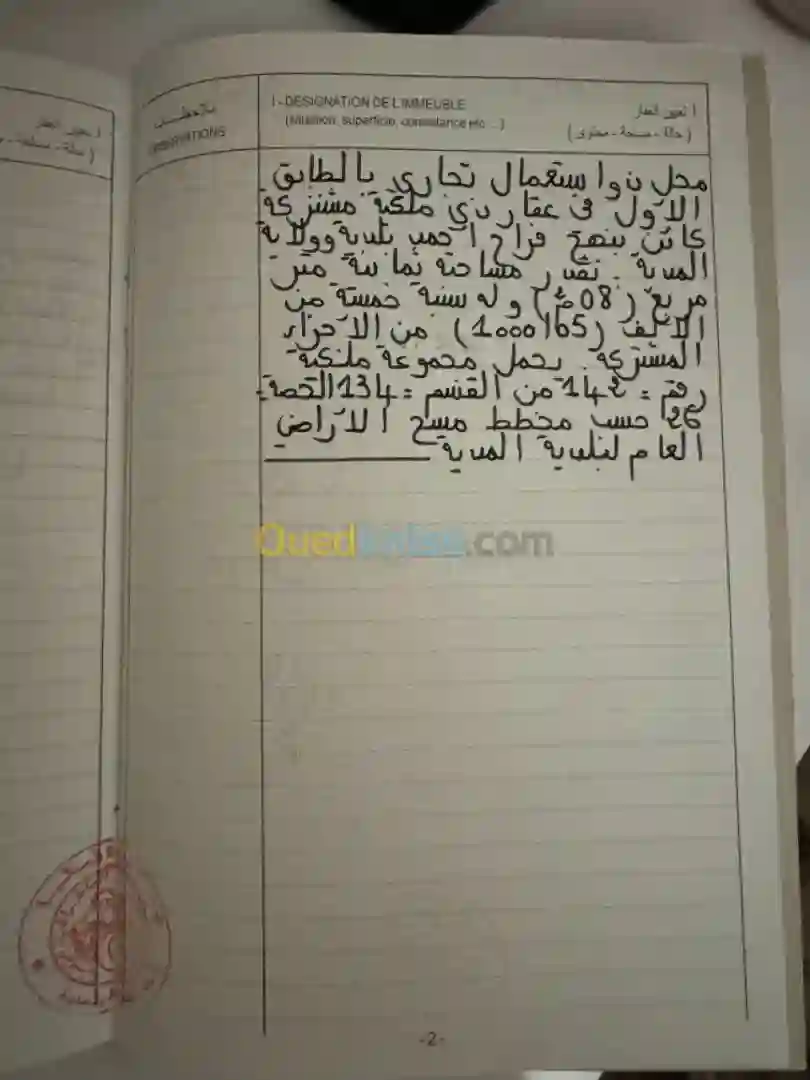 ملاحظات
OBSERVATIONS
I - DESIGNATION DE L'IMMEUBLE
(situation, superficie, consistance etc ...)
I تعيين العقار
( حالة - مساحة - محتوى )
محل ذو استعمال تجاري بالطابق
الأول في عقار ذي ملكية مشتركة
كائن بنهج فراح احمد بلدية وولاية
المدية. تقدر مساحته ثمانية متر
مربع (08م²) وله نسبة خمسة من
الألف (1000/05) من الأجزاء
المشتركة. يحمل مجموعة ملكية
رقم: 142 من القسم: 134 الحصة:
26 حسب مخطط مسح الأراضي
العام لبلدية المدية
Ouedkniss.com
-2-